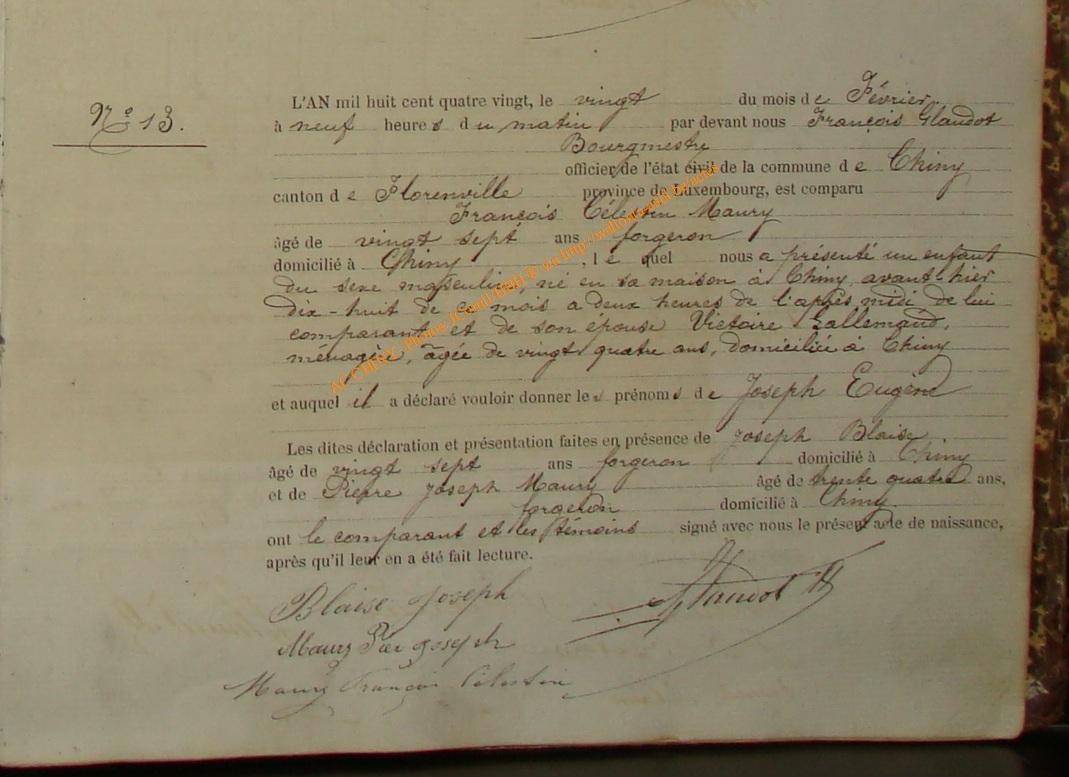 N° 13.
L'AN mil huit cent quatre vingt, le vingt du mois de Février
à neuf heures du matin par devant nous François Glaudot
Bourgmestre
officier de l'état civil de la commune de Chiny
canton de Florenville province de Luxembourg, est comparu
François Célestin Maury
âgé de vingt sept ans forgeron
domicilié à Chiny, lequel nous a présenté un enfant
du sexe masculin, né en sa maison à Chiny avant-hier
dix-huit de ce mois a deux heures de l'après midi de lui
comparant et de son épouse Victoire Gallemand,
ménagère, âgée de vingt quatre ans, domiciliée à Chiny
et auquel il a déclaré vouloir donner les prénoms de Joseph Eugène
Les dites déclaration et présentation faites en présence de Joseph Blaise
âgé de vingt sept ans forgeron domicilié à Chiny
et de Pierre Joseph Maury âgé de trente quatre ans,
forgeron domicilié à Chiny.
ont le comparant et les témoins signé avec nous le présent acte de naissance,
après qu'il leur en a été fait lecture.
Blaise Joseph
Glaudot
Maury Joseph
Maury François Célestin